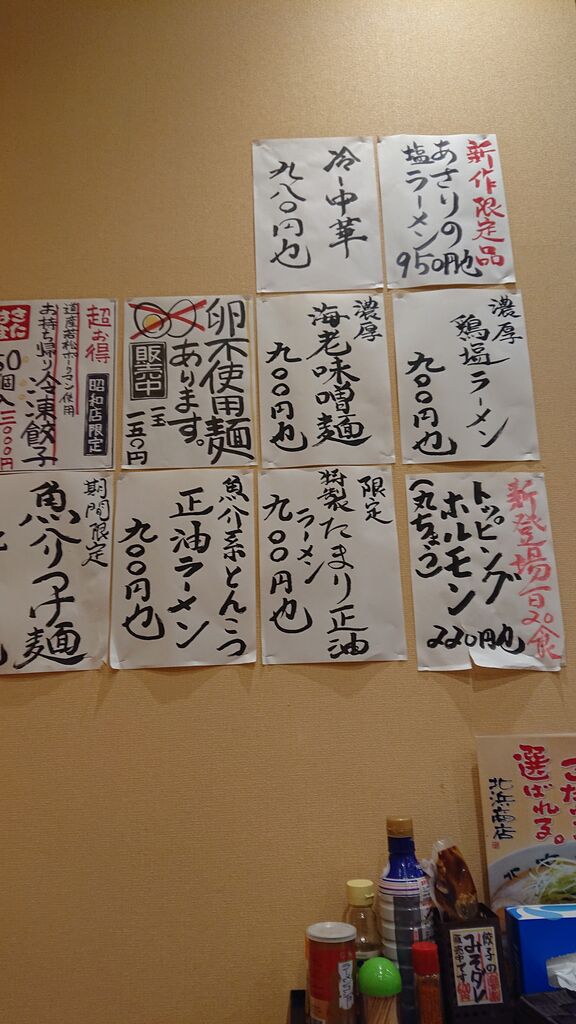 新作限定品
あさりの
塩ラーメン
950円也
冷し中華
九八〇円也
濃厚
鶏塩ラーメン
九〇〇円也
濃厚
海老味噌麺
九〇〇円也
卵不使用麺
あります。
販売中
一玉
一五〇円
超お得
昭和店限定
道産若松ポークマン使用
お持ち帰り冷凍餃子
50個入
三〇〇〇円
新登場一日20食
トッピング
ホルモン
(丸ちょう)
220円也
限定
特製たまり正油
ラーメン
九〇〇円也
魚介系とんこつ
正油ラーメン
九〇〇円也
期間限定
魚介つけ麺
選ばれる。
北浜商店
餃子の
みそダレ
販売中です